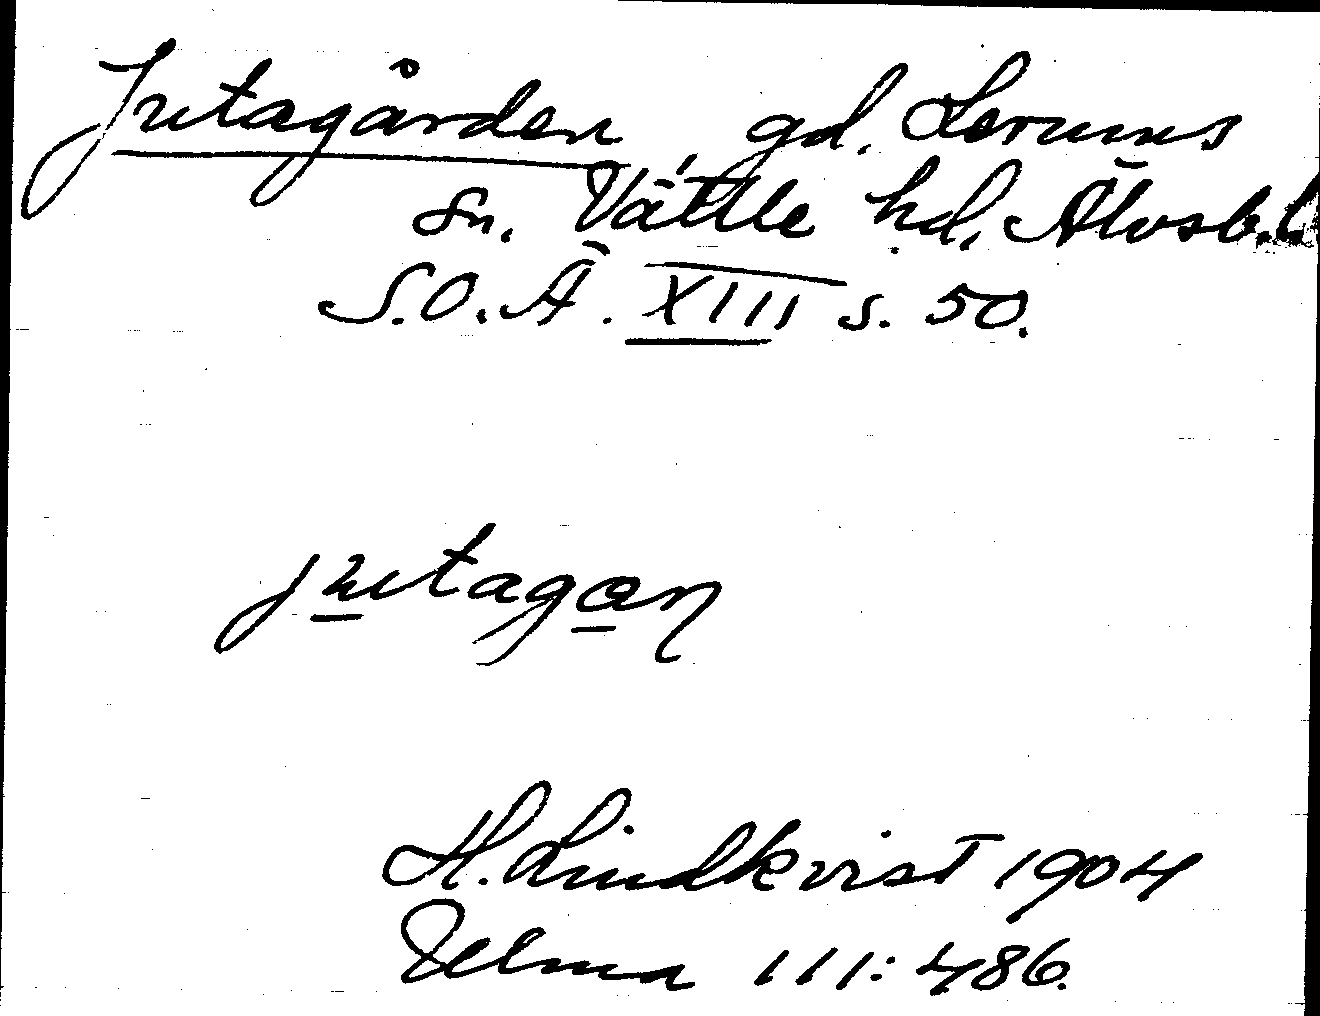 Jutagården, gd. Lerums
sn. Vättle hd. Älvsb. l.
S.O.Ä. XIII s. 50.
jutagan
H. Lindkvist 1904
Ulma 111:486.